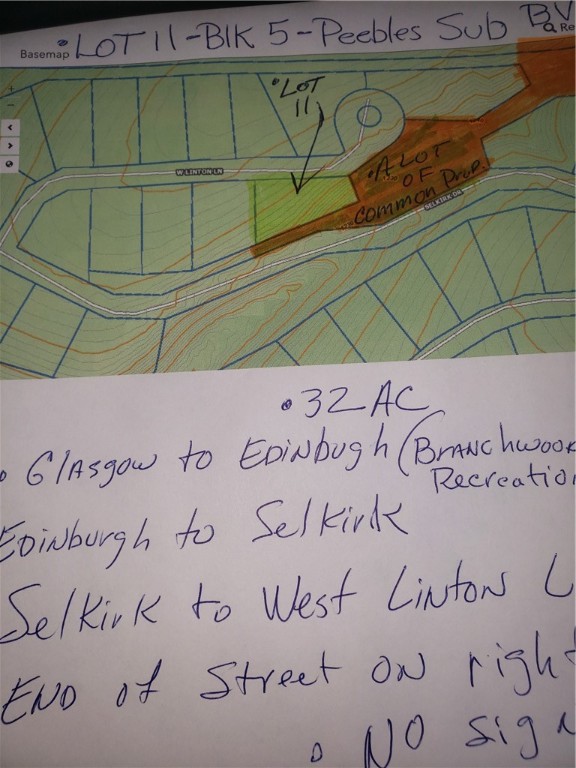 Basemap • LOT 11 - BlK 5 - Peebles Sub BV
Re
• LOT
11
W LINTON LN
• A LOT
OF
common Prop.
SELKIRK DR
• 32 AC
• Glasgow to EDINbugh (BRANchwook
Recreation
EDINburgh to SelKirk
SelKirk to West LINTON L
END of Street ON right
• NO sign